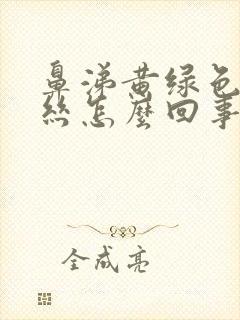 鼻涕黄绿色
丝怎麼回事
全成亮